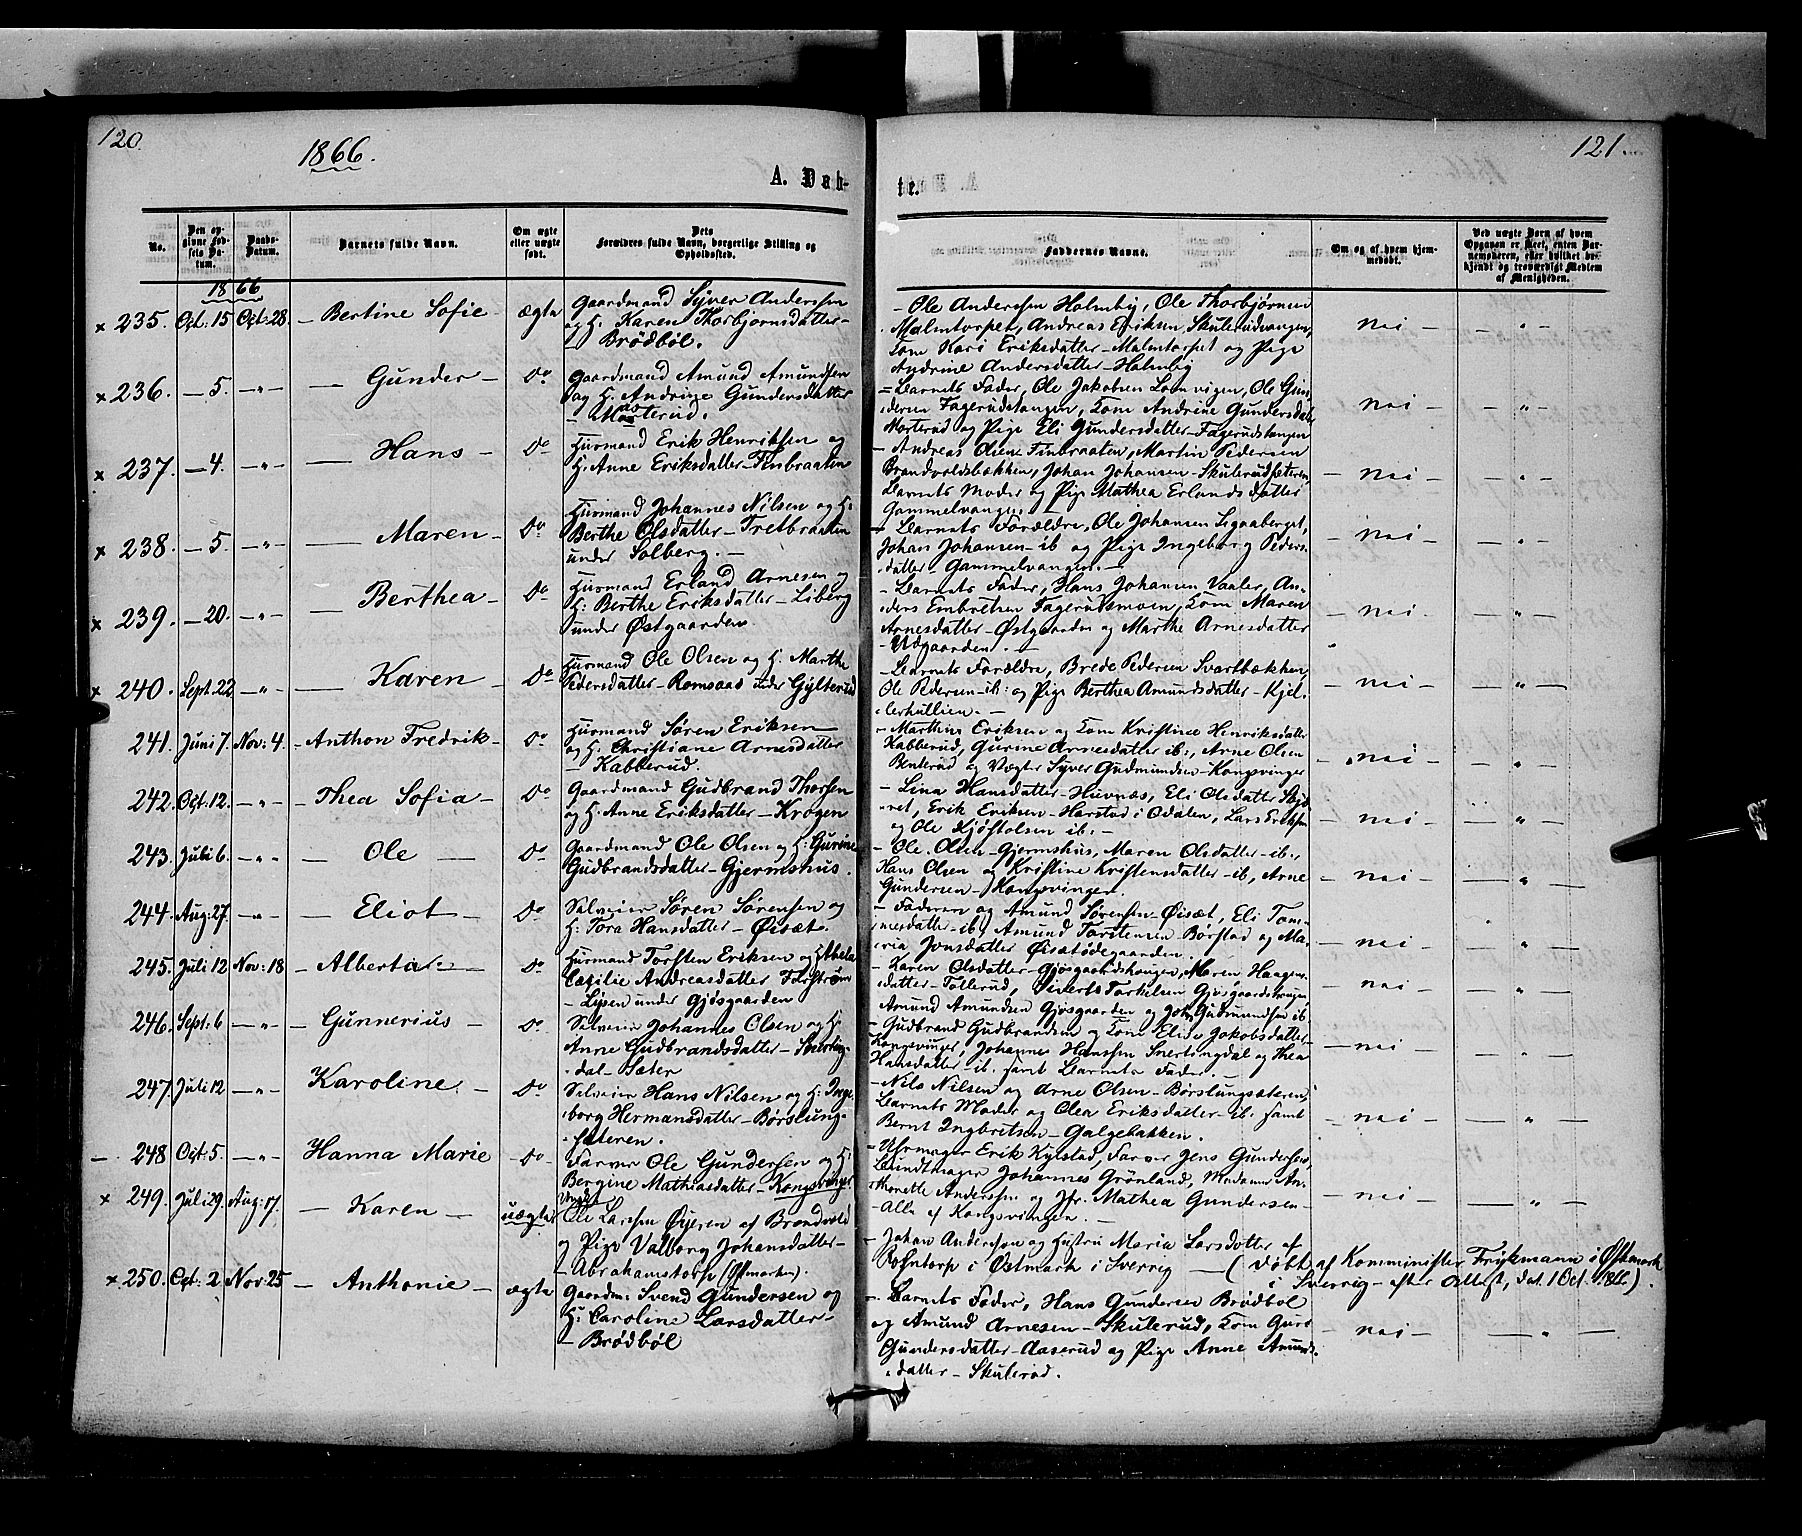 120.
1866.
A. Dab-
No.
Den opgivne Fødsels Datum.
Daabs-Datum.
Barnets fulde Navn.
Om ægte eller uægte født.
Dets
Forældres fulde Navn, borgerlige Stilling og Opholdssted.
1866
x 235. Oct: 15 Oct: 28. – Bertine Sofie – ægte
Gaardmand Syver Andersen
og H. Karen Thorbjørnsdatter –
– Brødbøl.
x 236. – 5. – „ – – Gunder – Do
Gaardmand Amund Amundsen
og H. Andrine Gundersdatter
– Morterud.
x 237. – 4. – „ – – Hans – Do
Husmand Erik Henriksen og
H. Anne Eriksdatter – Finbraaten
x 238. – 5. – „ – – Maren – Do
Husmand Johannes Nilsen og H:
Berthe Olsdatter – Tretbraaten
under Solberg. –
x 239. – 20. – „ – – Berthea – Do
Husmand Erland Arnesen og
H: Berthe Eriksdatter – Liberg
under Østgaarden.
x 240. Sept: 22 – „ – – Karen – Do
Husmand Ole Olsen og H. Marthe
Pedersdatter – Romsaas under Gylterud
241. Juni 7. Nov: 4. – Anthon Fredrik – Do
Husmand Søren Eriksen
og H. Christiane Arnesdatter
– Kabberud.
242. Oct: 12. – „ – – Thea Sofia – Do
Gaardmand Gudbrand Thorsen
og H: Anne Eriksdatter – Krogen
243. Juli 6. – „ – – Ole – Do
Gaardmand Ole Olsen og H: Gurine
Gudbrandsdatter – Gjermshus.
244. Aug: 27. – „ – – Eliot – Do
Selveier Søren Sørensen og
H: Tora Hansdatter – Øisæt.
245. Juli 12 Nov: 18 – Alberta – Do
Husmand Torsten Eriksen og H:
Cæcilie Andreasdatter
– Lysen under Gjøsgaarden
246. Sept: 6 – „ – – Gunnerius – Do
Selveier Johannes Olsen og H:
Anne Gudbrandsdatter – Snerting-
dal-Sæter
247. Juli 12 – „ – – Karoline – Do
Selveier Hans Nilsen og H: Inge-
borg Hermansdatter – Børslung-
sæteren.
– 248 Oct: 5. – „ – Hanna Marie – Do
Farver Ole Gundersen og H:
Bergine Mathiasdatter – Kongsvinger
x 249. Juli 29. Aug: 17. – Karen – uægte
Ungk:
Ole Larsen Øieren af Brandvold
og Pige Valborg Johansdatter –
– Abrahamstorp (Østmarken).
x 250. Oct: 2. Nov: 25 – Anthonie – ægte
Gaardm: Svend Gundersen og
H: Caroline Larsdatter –
– Brødbøl
121
te.
Faddernes Navne.
Om og af hvem hjemmedøbt.
Ved uægte Børn af hvem Opgaven er skeet, enten Barnemoderen, eller hvilket bekjendt og troværdigt Medlem af Menigheden.
– Ole Andersen Holmby, Ole Thorbjørnsen
Malmtorpet, Andreas Eriksen Skulerudvangen,
Kone Kari Eriksdatter – Malmtorpet og Pige
Andrine Andersdatter – Holmby
– nei – – „ –
– Barnets Fader, Ole Jakobsen Lomvigen, Ole Gun-
dersen Fagerudstangen, Kone Andrine Gundersdatter
Morterud og Pige Eli Gundersdatter – Fagerudstangen
– nei – – „ –
– Andreas Olsen Finbraaten, Martin Pedersen
Brandvoldsbakken, Johan Johansen – Skulerudsæteren
Barnets Moder og Pige Mathea Erlandsdatter
Gammelvangen. –
– nei – – „ –
– Barnets Forældre, Ole Johansen Sigaaberget,
Johan Johansen – ib og Pige Ingeborg Peders-
datter – Gammelvangen. –
– nei – – „ –
– Barnets Fader, Hans Johansen Vaaler, An-
ders Embretsen Fagerudsmoen, Kone Maren
Arnesdatter – Østgaarden og Marthe Arnesdatter
– nei – – „ –
– Barnets Forældre, Brede Pedersen Svartbækken,
Ole Pedersen – ib: og Pige Berthea Amundsdatter – Kjel-
lerhullien. –
– nei – – „ –
– Marthin Eriksen og Kone Kristine Henriksdatter
Kabberud, Gurine Arnesdatter ib:, Arne Olsen
Benterud og Vægter Syver Gudmundsen – Kongsvinger
– nei – – „ –
– Lina Hansdatter – Huvnæs, Eli Olsdatter
Erik Eriksen – Harstad i Odalen, Lars Eriksen
og Ole Kjøstolsen ib. –
– nei – – „ –
– Ole Olsen – Gjermshus, Maren Olsdatter – ib:,
Hans Olsen og Kristine Kristensdatter – ib, Arne
Gundersen – Kongsvinger.
– nei – – „ –
– Faderen og Amund Sørensen – Øisæt, Eli Tom-
mesdatter – ib, Amund Torstensen – Børstad og Ma-
ria Jonsdatter Øisætødegaarden. –
– nei – – „ –
– Karen Olsdatter – Gjøsgaardshaugen, Maren Haagens-
datter – Tollerud, Sivert Torkelsen Gjøsgaardshaugen,
Amund Amundsen Gjøsgaarden og Joh: Gudmundsen ib
– nei – – „ –
– Gudbrand Gudbrandsen og Kone Elise Jakobsdatter
Kongsvinger, Johannes Hanssen Snertingdal og Thea
Hansdatter – ib. samt Barnets Fader. –
– nei – – „ –
– Nils Nilsen og Arne Olsen – Børslungsæteren,
Barnets Moder og Olea Eriksdatter – ib: samt
Bernt Ingbretsen – Galgebakken.
– nei – – „ –
– Uhrmager Erik Kylstad, Farver Jens Gundersen,
Bundtmager Johannes Grønland, Madame An-
thonette Andersen og Jfr. Mathea Gundersen –
– Alle af Kongsvinger. –
– nei – – „ –
– Johan Andersson og Hustru Maria Larsdotter af
i Østmark i Sverrig – (døbt af Komminister Frykmann i Østmark
i Sverrig – efter Attest, dat. 1 Oct. 1866).
– Barnets Fader, Hans Gundersen Brødbøl
og Amund Arnesen – Skulerud, Kone Guro
Gundersdatter – Aaserud og Pige Anne Amunds-
datter – Skulerud.
– nei – – „ –